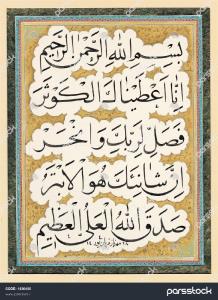 بِسْمِ اللهِ الرَّحْمٰنِ الرَّحِيْمِ
اِنَّا اَعْطَيْنَاكَ الْكَوْثَرَ
فَصَلِّ لِرَبِّكَ وَانْحَرْ
اِنَّ شَانِئَكَ هُوَ الْاَبْتَرُ
صَدَقَ اللهُ الْعَلِيُّ الْعَظِيْمُ
parsstock